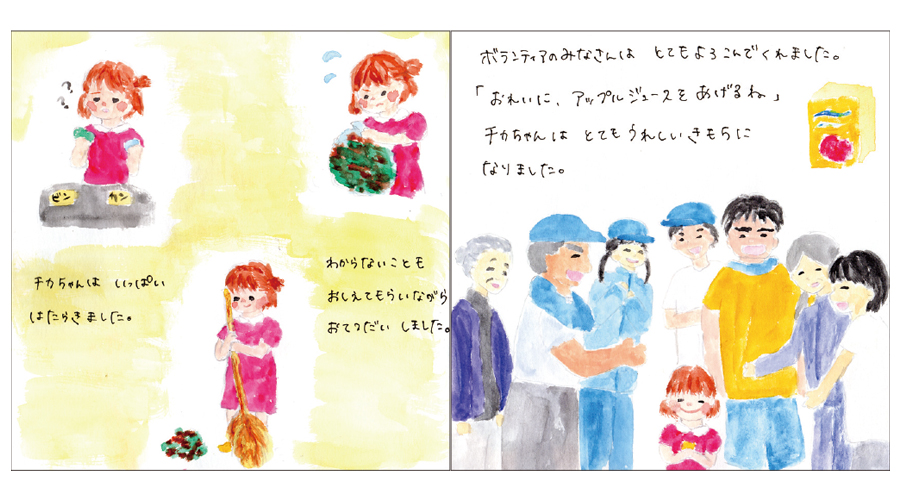 ビン
カン
チカちゃんは いっぱい
はたらきました。
わからないことも
おしえてもらいながら
おてつだい しました。
ボランティアのみなさんは とてもよろこんでくれました。
「おれいに、アップルジュースをあげるね」
チカちゃんは とても うれしいきもちに
なりました。